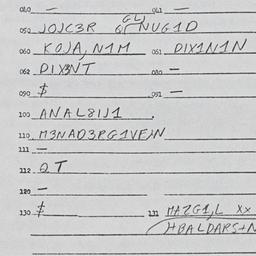 040 — 041 —
GL
050 JOJC3R G NUG1D
060 KOJA,N1M 061 DIX1N1N
062 DIX3NT 080 —
090 $ 091 —
100 ANAL8IJ1 .
110 M3NAD3RG1VE/N
111 —
112 QT
120 —
130 $ 131 MAZG1,L XX
HBALDARS+N